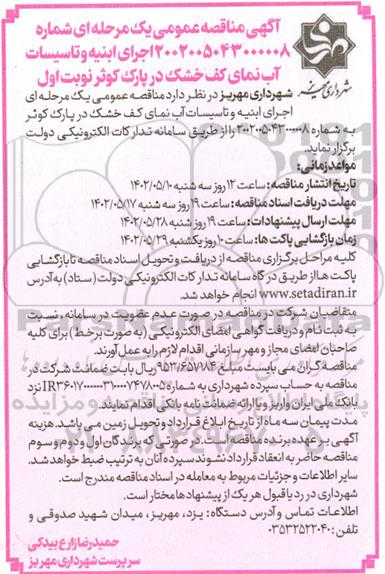 آگهی مناقصه عمومی یک مرحله ای شماره
۲۰۰۲۰۰۵۰۴۳۰۰۰۰۰۸ اجرای ابنیه و تاسیسات
آب نمای کف خشک در پارک کوثر نوبت اول
شهرداری مهریز
شهرداری مهریز در نظر دارد مناقصه عمومی یک مرحله ای
اجرای ابنیه و تاسیسات آب نمای کف خشک در پارک کوثر
به شماره ۲۰۰۲۰۰۵۰۴۳۰۰۰۰۰۸ را از طریق سامانه تدارکات الکترونیکی دولت
برگزار نماید.
مواعد زمانی:
تاریخ انتشار مناقصه: ساعت ۱۲ روز سه شنبه ۱۴۰۲/۰۵/۱۰
مهلت دریافت اسناد مناقصه: ساعت ۱۹ روز سه شنبه ۱۴۰۲/۰۵/۱۷
مهلت ارسال پیشنهادات: ساعت ۱۹ روز شنبه ۱۴۰۲/۰۵/۲۸
زمان بازگشایی پاکت ها: ساعت ۱۰ روز یکشنبه ۱۴۰۲/۰۵/۲۹
کلیه مراحل برگزاری مناقصه از دریافت و تحویل اسناد مناقصه تا بازگشایی
پاکت ها از طریق درگاه سامانه تدارکات الکترونیکی دولت (ستاد) به آدرس
www.setadiran.ir انجام خواهد شد.
متقاضیان شرکت در مناقصه در صورت عدم عضویت در سامانه، نسبت
به ثبت نام و دریافت گواهی امضای الکترونیکی (به صورت برخط) برای کلیه
صاحبان امضای مجاز و مهر سازمانی اقدام لازم را به عمل آورند.
مناقصه گران می بایست مبلغ ۹۵۲/۶۵۷/۷۸۴ ریال بابت ضمانت شرکت در
مناقصه به حساب سپرده شهرداری به شماره IR۳۶۰۱۷۰۰۰۰۰۰۳۱۰۰۰۰۷۴۷۸۰۰۵ نزد
بانک ملی ایران واریز و یا ارائه ضمانت نامه بانکی اقدام نمایند.
مدت پیمان سه ماه از تاریخ ابلاغ قرارداد و تحویل زمین می باشد. هزینه
آگهی بر عهده برنده مناقصه است. در صورتی که برندگان اول و دوم و سوم
مناقصه حاضر به انعقاد قرارداد نشوند سپرده آنان به ترتیب ضبط خواهد شد.
سایر اطلاعات و جزئیات مربوط به معامله در اسناد مناقصه مندرج است.
شهرداری در رد یا قبول هر یک از پیشنهادها مختار است.
اطلاعات تماس و آدرس دستگاه: یزد، مهریز، میدان شهید صدوقی و
تلفن: ۰۳۵۳۲۵۲۲۰۴۰
حمیدرضا زارع بیدکی
سرپرست شهرداری مهریز